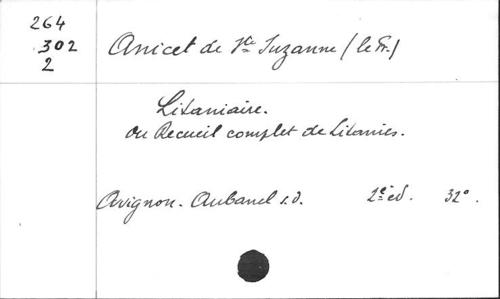 264
302
2
Anicet de Ste Suzanne (le Fr.)
Litaniaire.
ou Recueil complet de Litanies.
Avignon. Aubanel s.d. 2e ed. 32°.